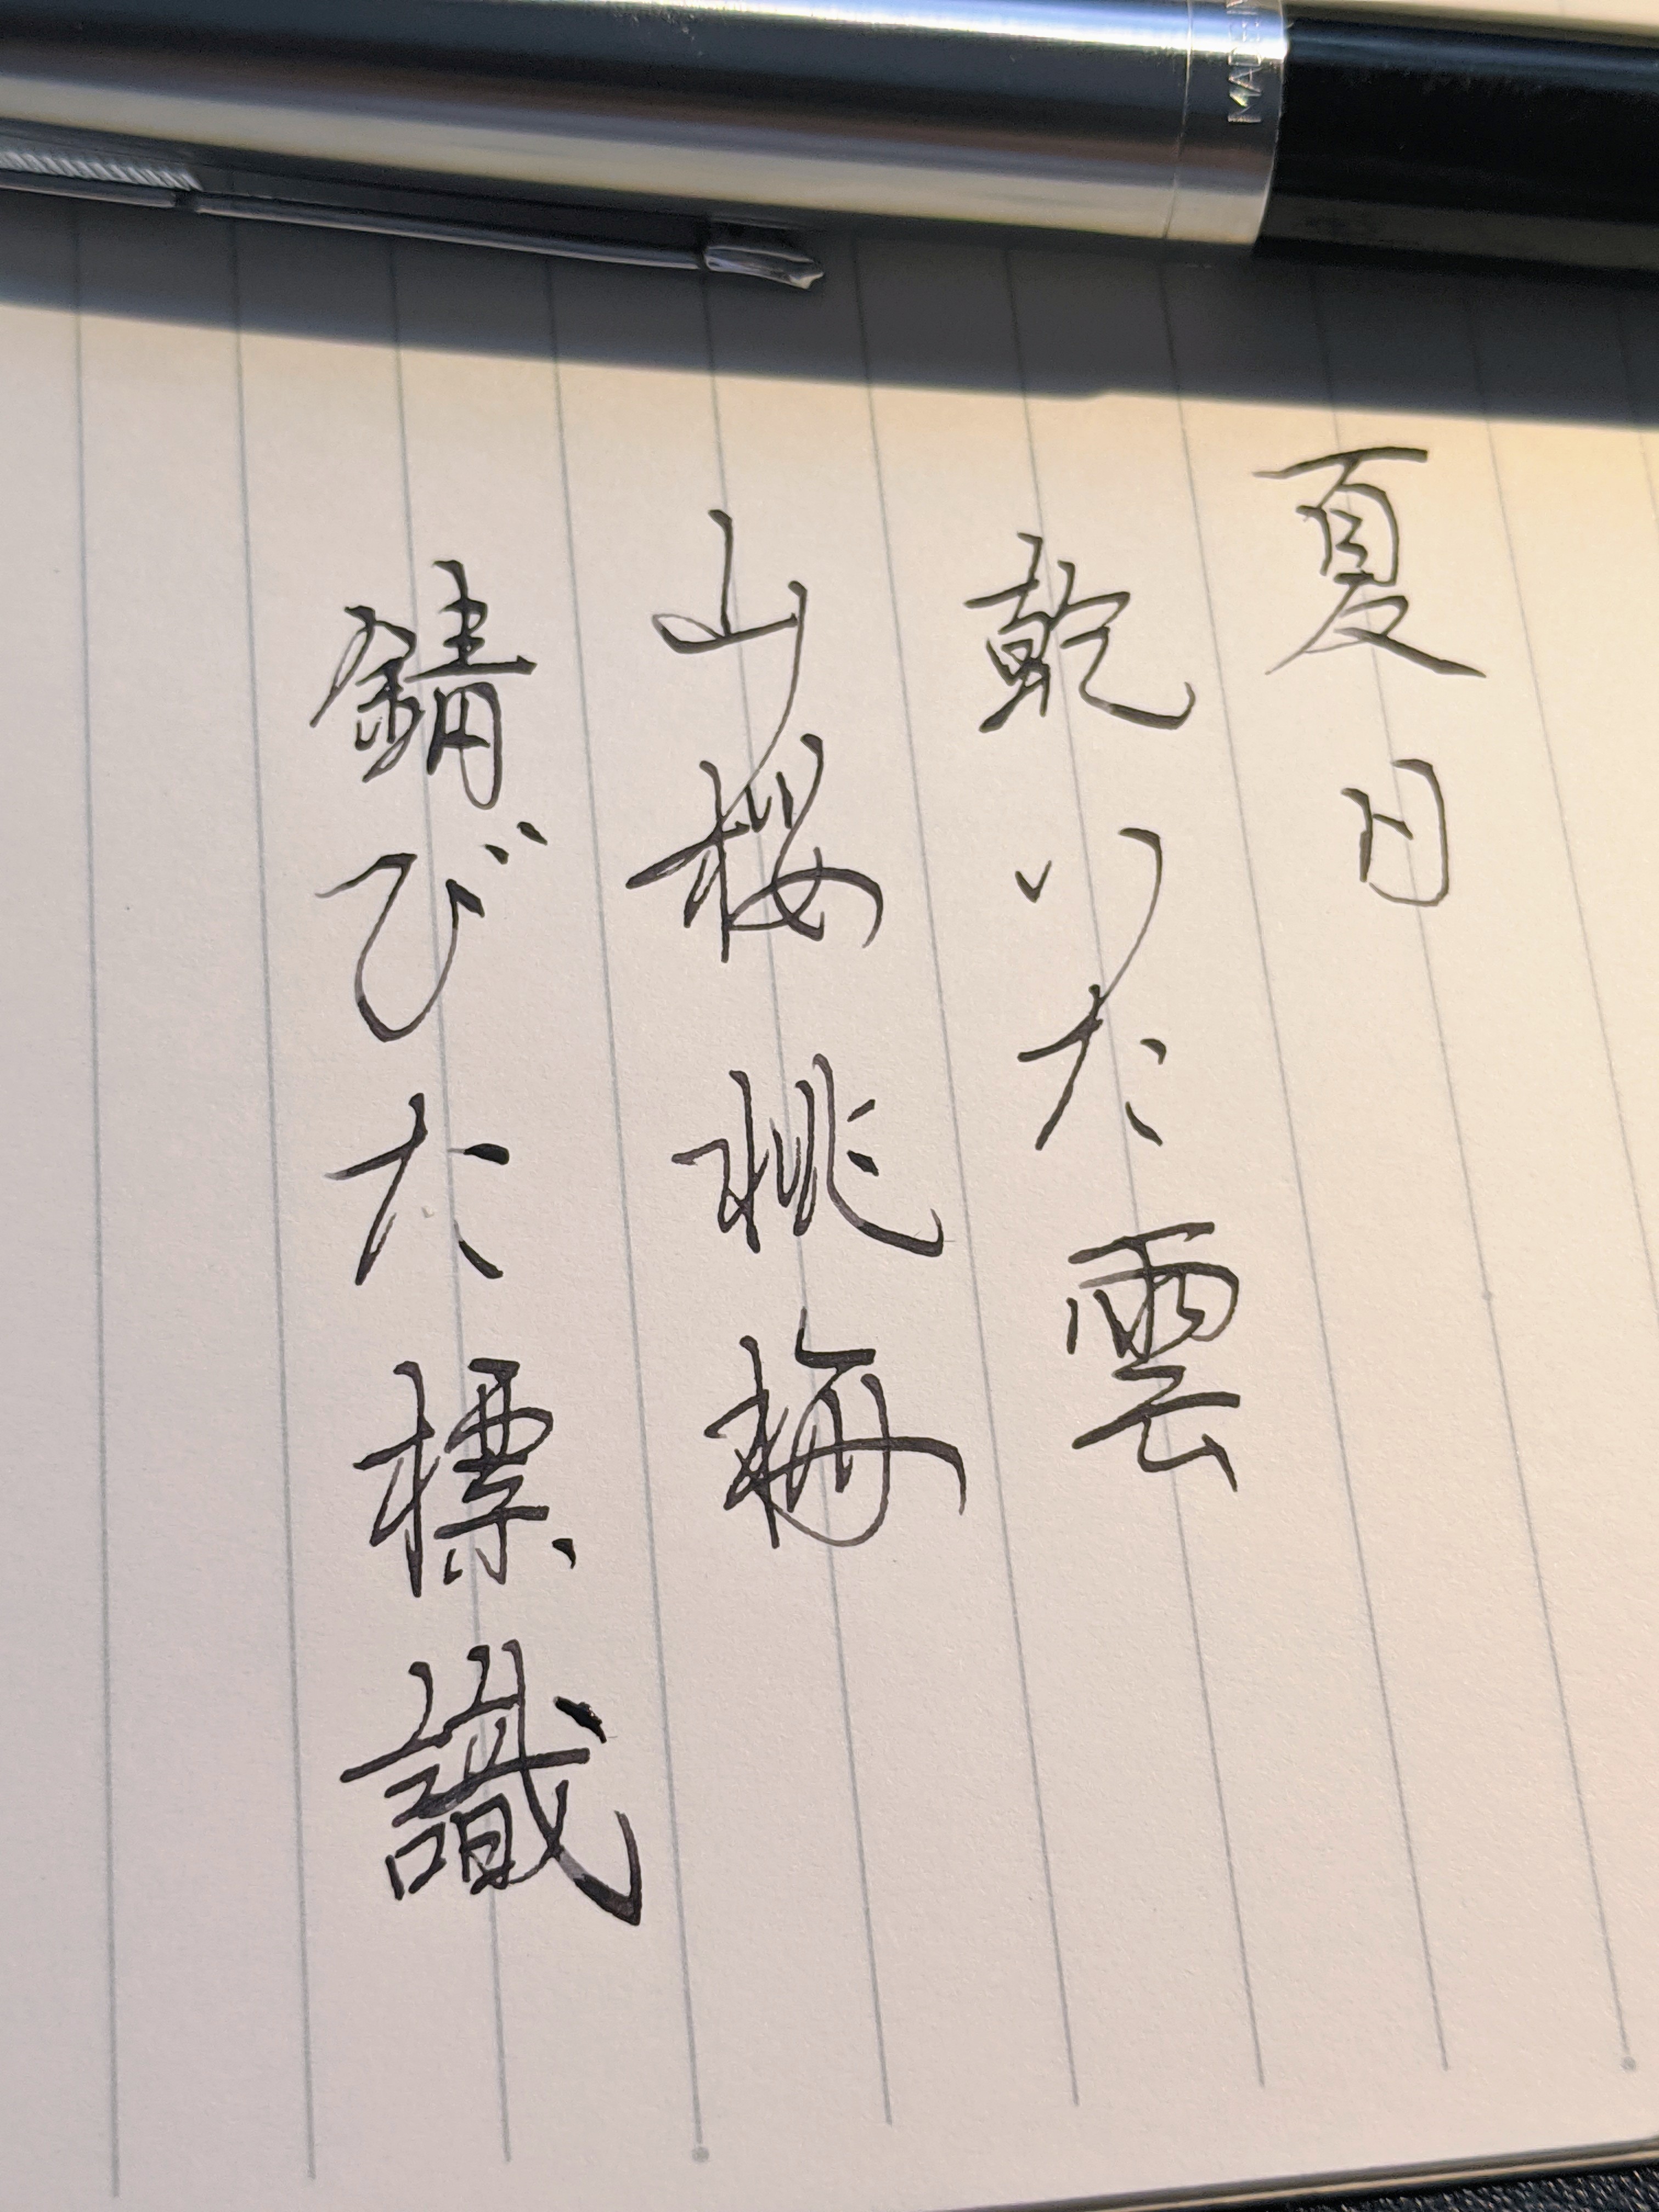 夏日
乾いた雲
山桜桃梅
錆びた標識
MADE IN